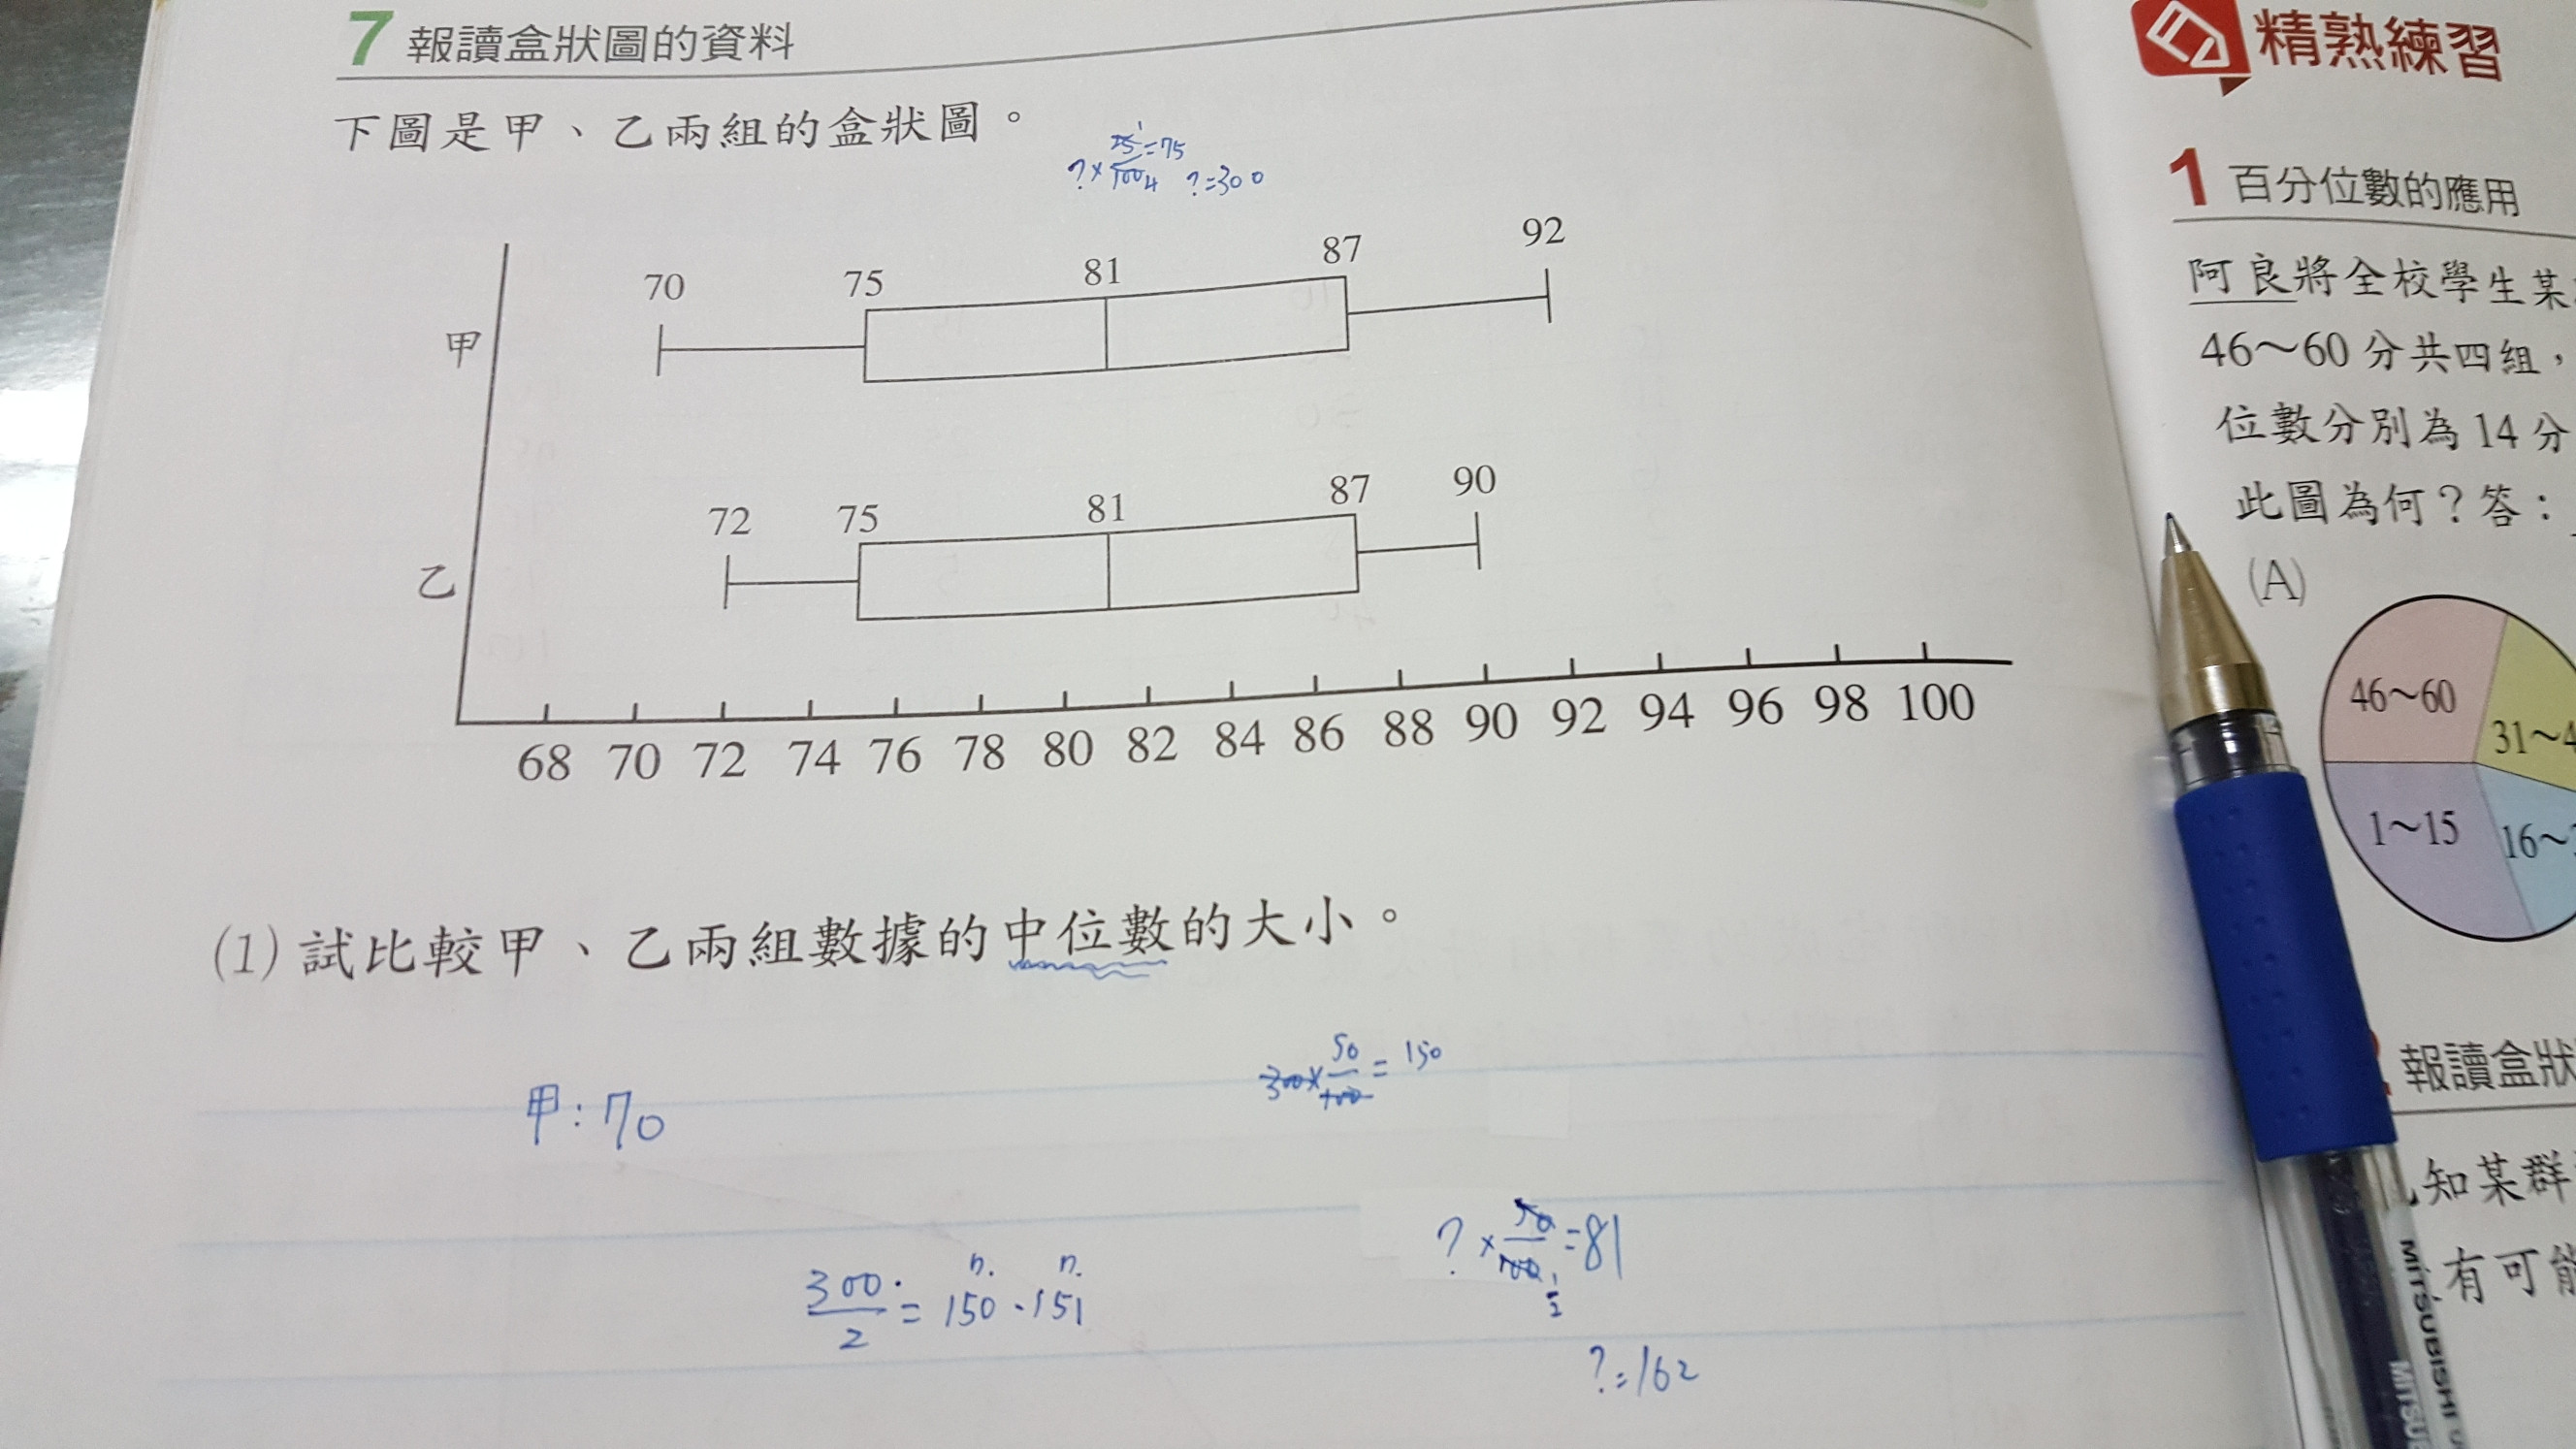 7 報讀盒狀圖的資料
下圖是甲、乙兩組的盒狀圖。
?×25/100 4 1=75
?=300
甲
70 75 81 87 92
乙
72 75 81 87 90
68 70 72 74 76 78 80 82 84 86 88 90 92 94 96 98 100
(1) 試比較甲、乙兩組數據的中位數的大小。
300×50/100=150
甲:70
?×50/100=81
300/2=150.151
n. n.
?=162
精熟練習
1 百分位數的應用
阿良將全校學生某
46～60 分共四組，
位數分別為 14 分
此圖為何？答：
(A)
46～60
31～4
1～15
16～
報讀盒狀
知某群
有可能
MITSUBISHI
MITSU